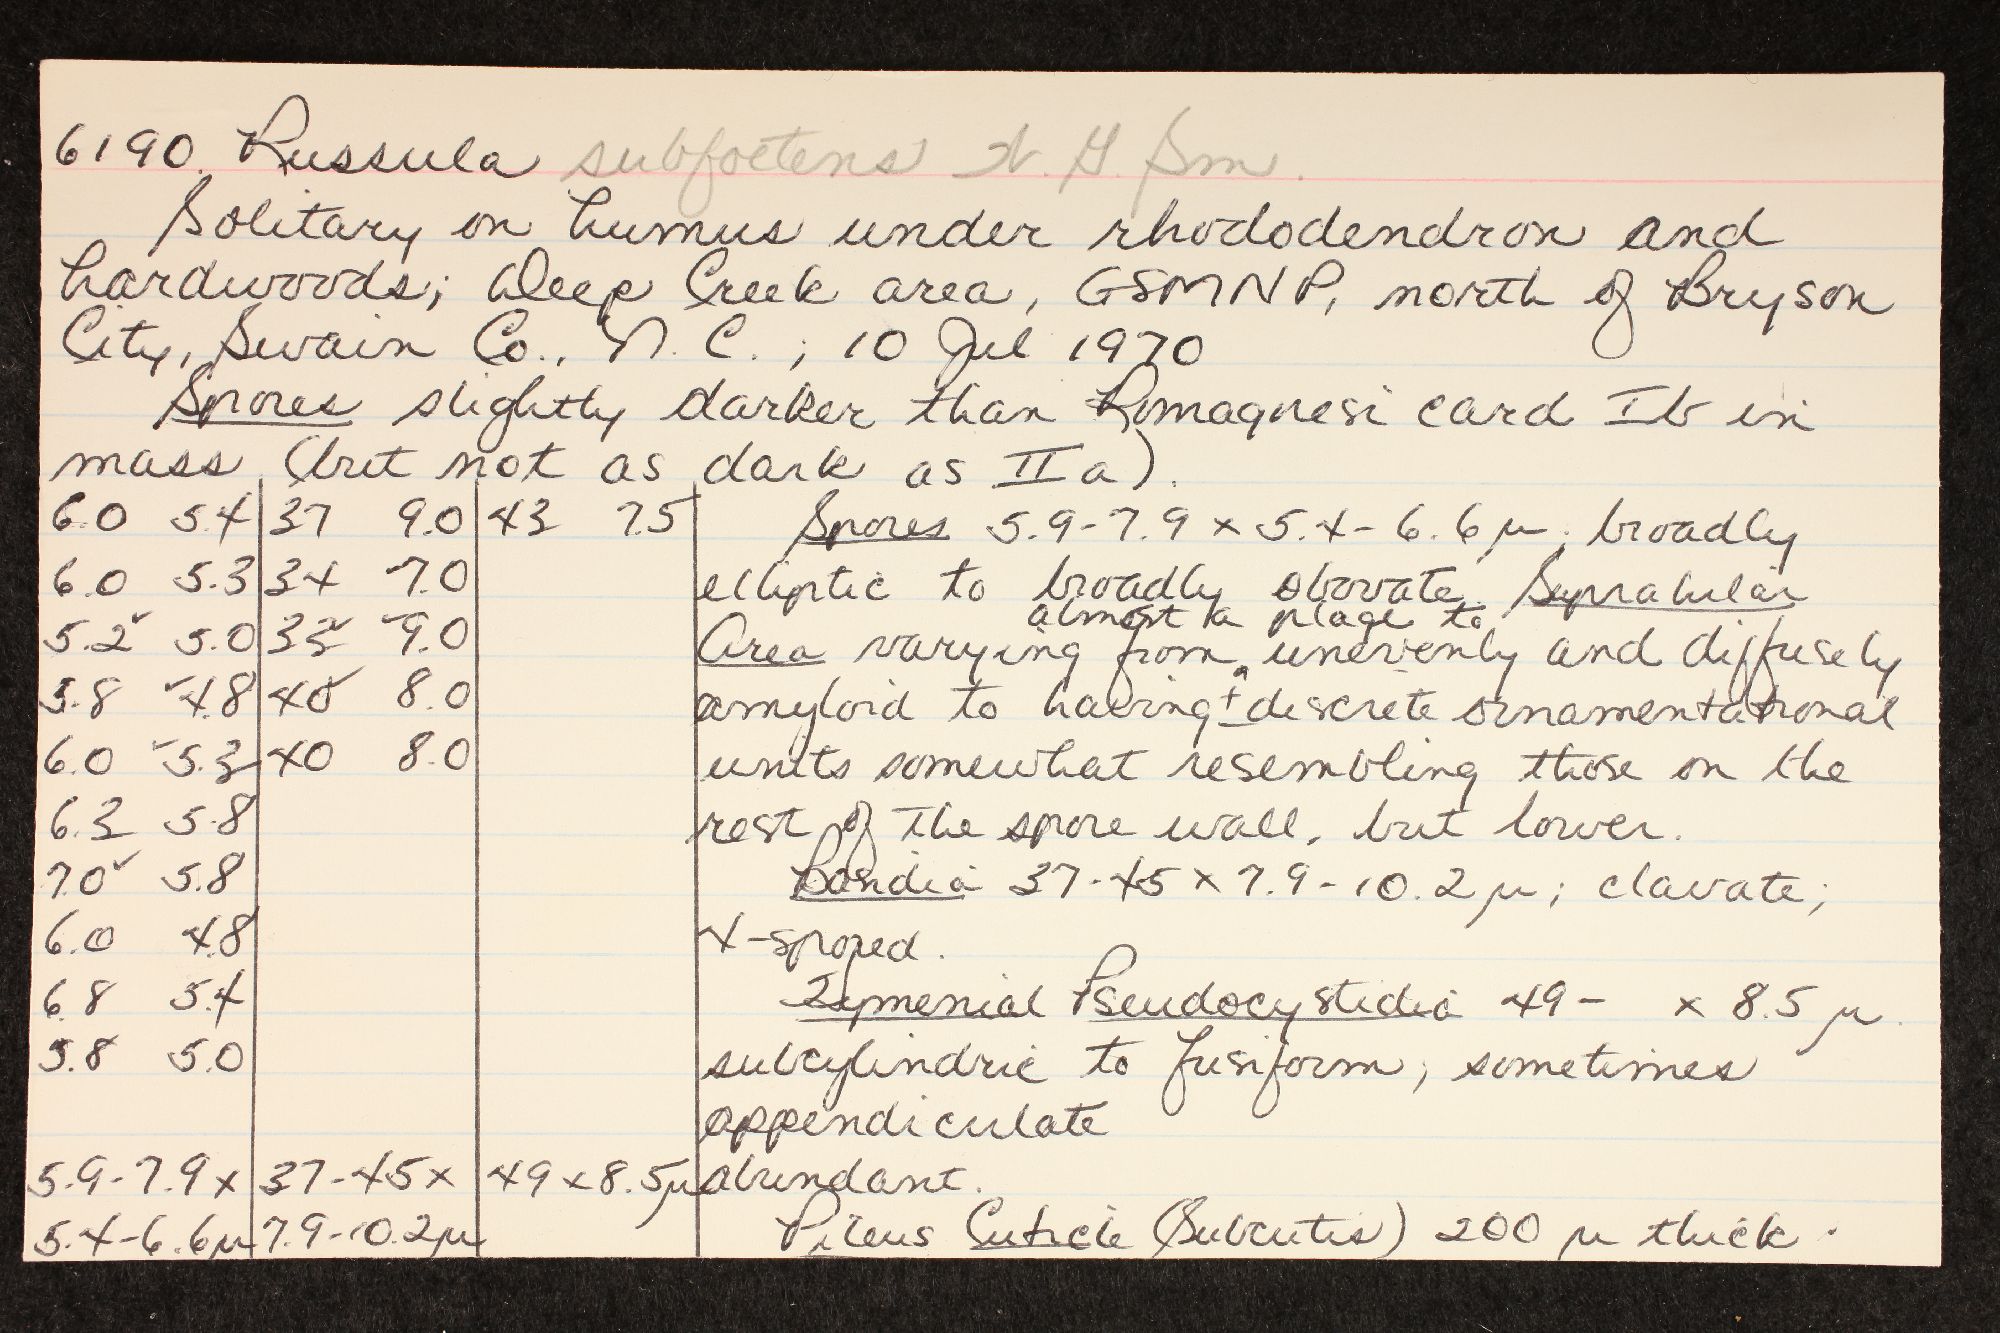 6190. Russula subfoetens W. G. Sm.
Solitary on humus under rhododendron and
hardwoods; Deep Creek area, GSMNP, north of Bryson
City, Swain Co., N. C.; 10 Jul 1970
Spores slightly darker than Romagnesi card Ib in
mass (but not as dark as IIa).
6.0 5.4 37 9.0 43 7.5
6.0 5.3 34 7.0
5.2 5.0 33 9.0
5.8 4.8 40 8.0
6.0 5.3 40 8.0
6.3 5.8
7.0 5.8
6.0 4.8
6.8 5.4
5.8 5.0
5.9-7.9 x 37-45 x 49 x 8.5 µ
5.4-6.6 µ 7.9-10.2 µ
Spores 5.9-7.9 x 5.4-6.6 µ; broadly
elliptic to broadly obovate. Suprahilar
almost a plage to
Area varying from unevenly and diffusely
amyloid to having ± discrete ornamentational
units somewhat resembling those on the
rest of the spore wall, but lower.
Basidia 37-45 x 7.9-10.2 µ; clavate;
4-spored.
Hymenial Pseudocystidia 49- x 8.5 µ.
subcylindric to fusiform; sometimes
appendiculate
abundant.
Pileus Cuticle (Subcutis) 200 µ thick.